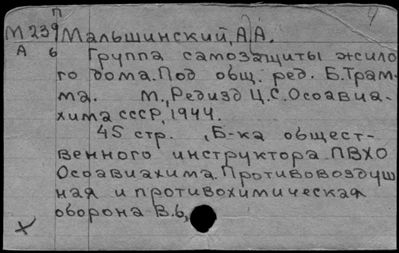 П
М 239 Мальшинский, А.А.
А 6 Группа самозащиты жило-
го дома. Под общ. ред. Б. Трам-
ма. М., Редизд Ц.С. Осоавиа-
хима СССР, 1944.
45 стр. , Б-ка общест-
венного инструктора ПВХО
Осоавиахима. Противовоздуш
ная и противохимическая
оборона В.6,